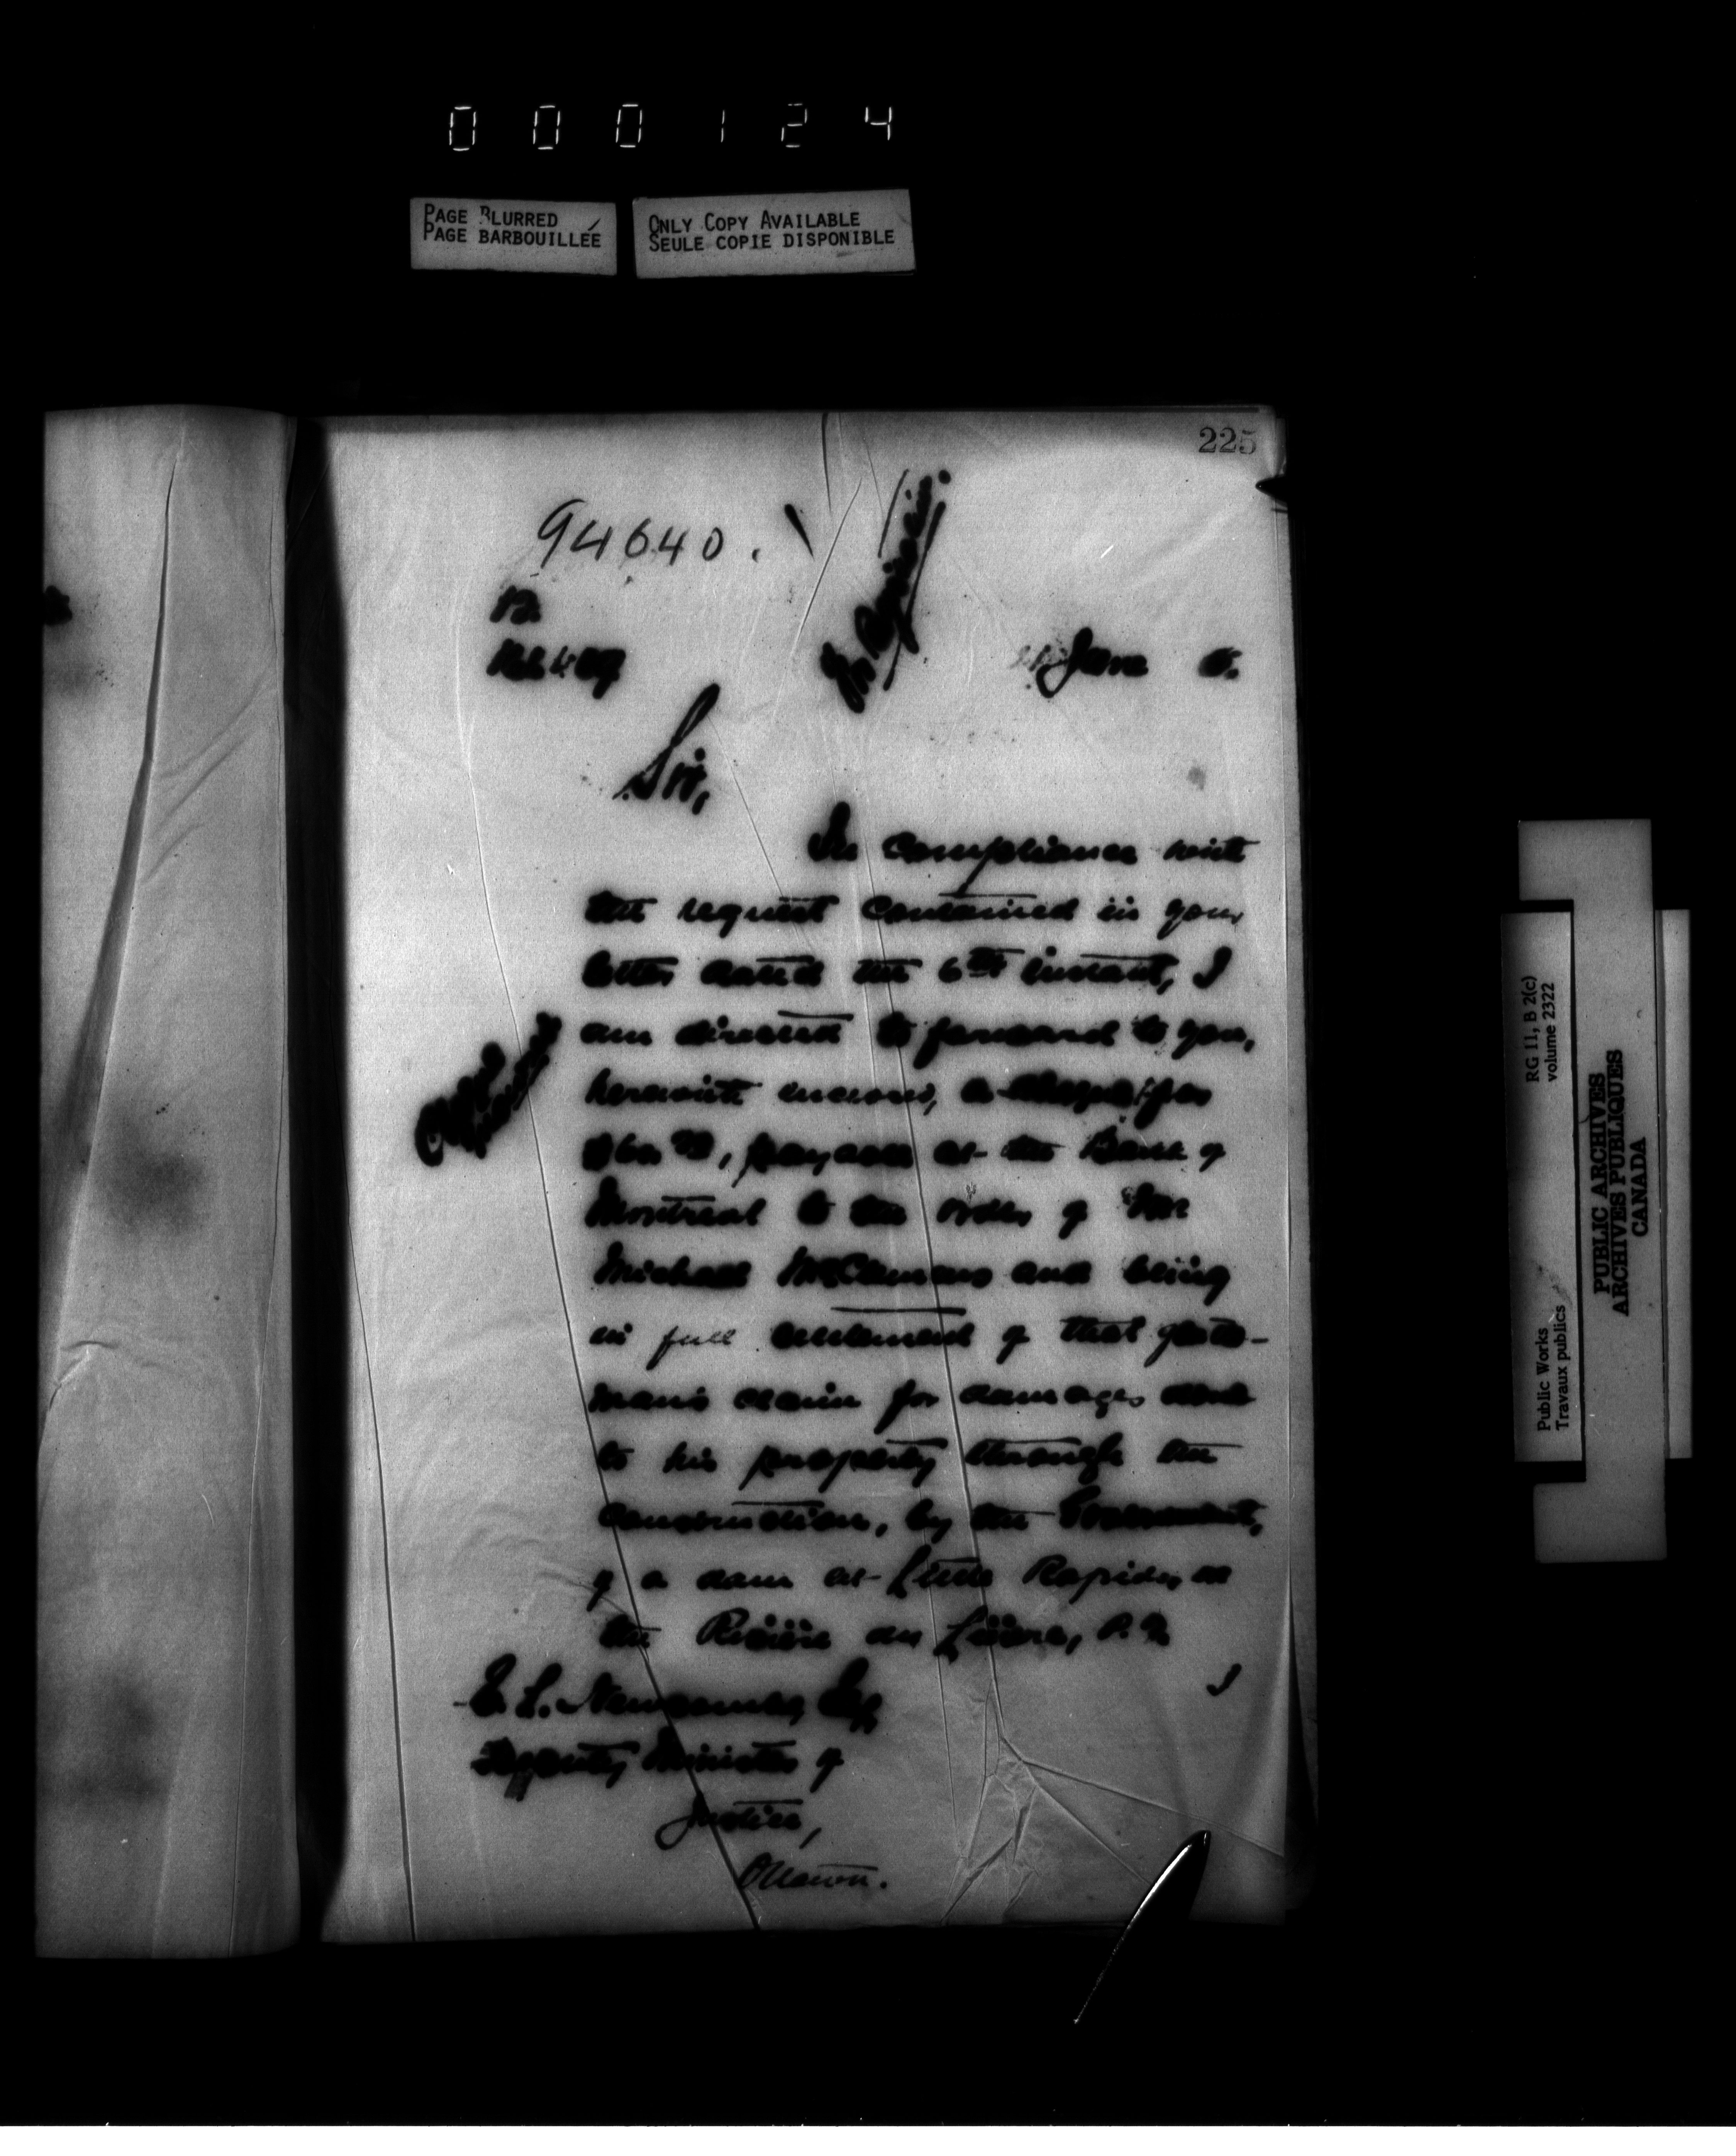 0 0 0 1 2 4
PAGE BLURRED
PAGE BARBOUILLÉE
ONLY COPY AVAILABLE
SEULE COPIE DISPONIBLE
225
94640.
June
Sir,
In compliance with
the request contained in your
letter dated the 6th instant, I
am directed to forward to you,
herewith inclosed, a cheque for
payable at the Bank of
Montreal to the order of Mr
Michael and being
in full settlement of that gentle-
man's claim for damages done
to his property through the
construction, by the Government,
of a dam at Little Rapids, on
the Rivière du Lièvre, P.Q.
I
E. L. Newcombe, Esq,
Deputy Minister of
Justice,
Ottawa.
Public Works
Travaux publics
RG 11, B 2(c)
volume 2322
PUBLIC ARCHIVES
ARCHIVES PUBLIQUES
CANADA